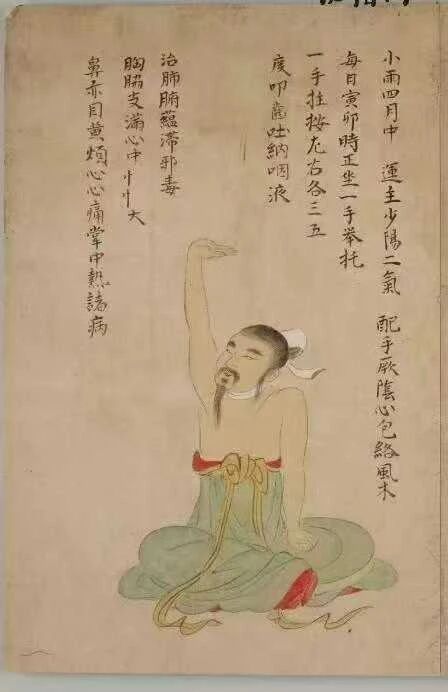 小雨四月中 運主少陽二氣 配手厥陰心包絡風木
每日寅卯時正坐一手举托
一手拄按左右各三五
度叩齒吐納咽液
治肺腑蘊滯邪毒
胸脇支滿心中忄忄大
鼻亦目黄煩心心痛掌中熱諸病